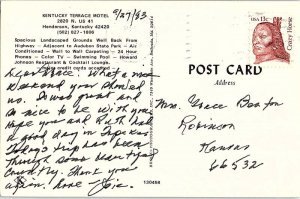 KENTUCKY TERRACE MOTEL
2020 N. US 41
Henderson, Kentucky 42420
(502) 827-1806
Spacious Landscaped Grounds Well Back From
Highway - Adjacent to Audubon State Park - Air
Conditioned - Wall to Wall Carpeting - 24 Hour
Phones - Color TV - Swimming Pool - Howard
Johnson Restaurant & Cocktail Lounge.
Major credit cards accepted.
9/27/83
Dear Grace: What a nice
weekend you showed
us. It was great and
so nice to be with you.
Hope you and Ruth had
a good day in Topeka.
Today's trip has been
through some
country. Thank you
again, love
130498
USA 13c
Crazy Horse
POST CARD
Address
Mrs. Grace Banton
Robinson
Kansas
66532